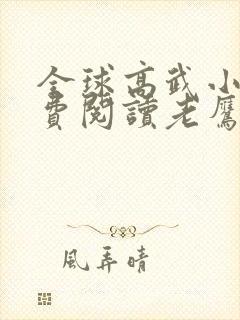 全球高武小
費閱讀老鷹
風弄晴